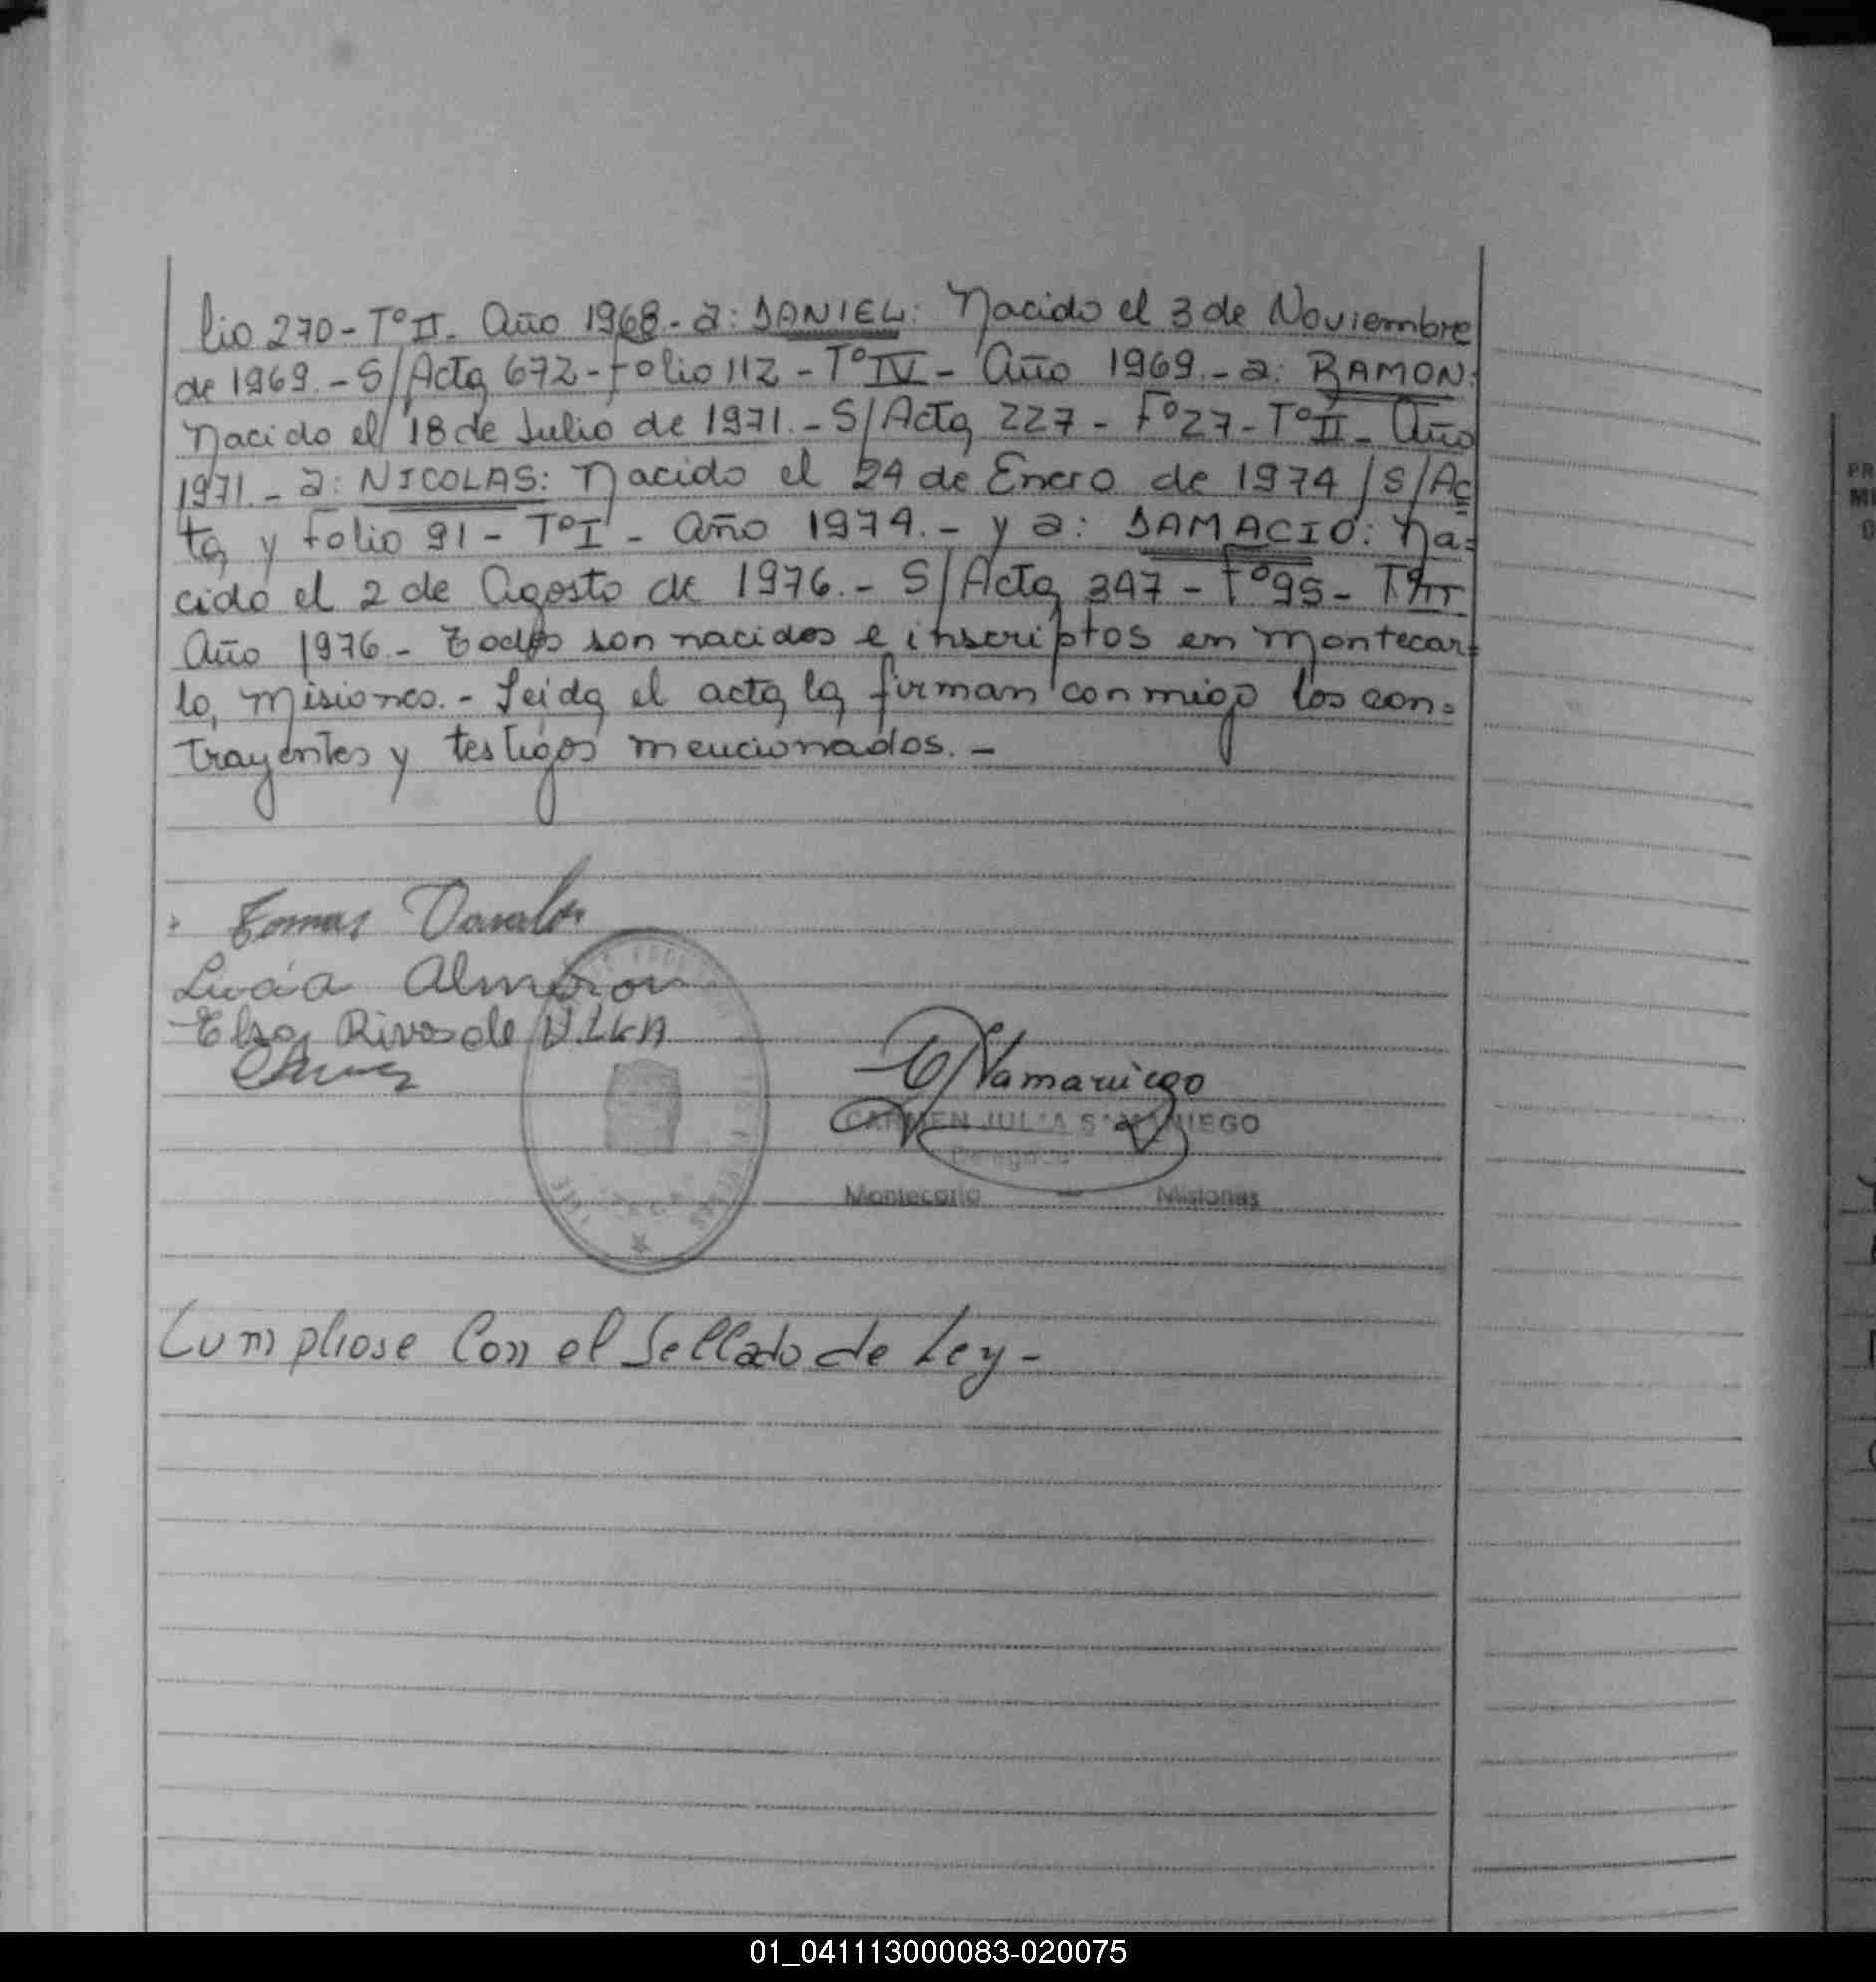 lio 270 - T° II - Año 1968 - a: DANIEL: Nacido el 3 de Noviembre
de 1969. - S/Acta 672 - folio 112 - T° IV - Año 1969. - a: RAMON:
Nacido el 18 de Julio de 1971. - S/Acta 227 - F° 27 - T° II - Año
1971. - a: NICOLAS: Nacido el 24 de Enero de 1974 / S/Ac
ta y Folio 91 - T° I - Año 1974. - y a: DAMACIO: Na=
cido el 2 de Agosto de 1976. - S/Acta 347 - F° 95 - T° II
Año 1976 - Todos son nacidos e inscriptos en Montecar=
lo, Misiones. - Leida el acta la firman conmigo los con=
trayentes y testigos mencionados. -
Tomas
Lucia Almiron
Elsa Rivas de
CJSamaniego
CARMEN JULIA SAMANIEGO
Montecarlo - Misiones
Cumpliose Con el Sellado de Ley -
PR
MI
01_041113000083-020075